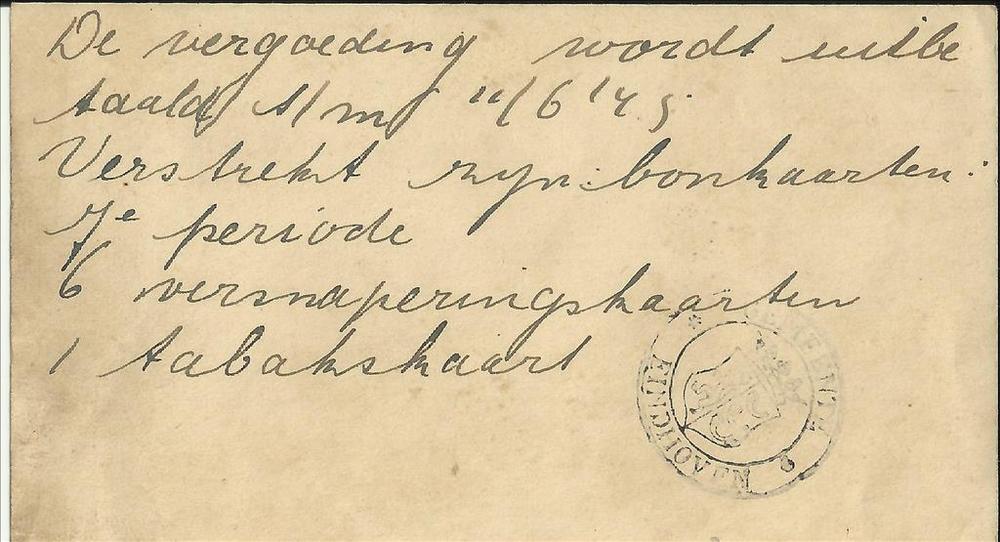 De vergoeding wordt uitbe
taald t/m 11/6 '45
Verstrekt zyn: bonkaarten:
7e periode
6 versnaperingskaarten
1 tabakskaart
EINDHOVEN